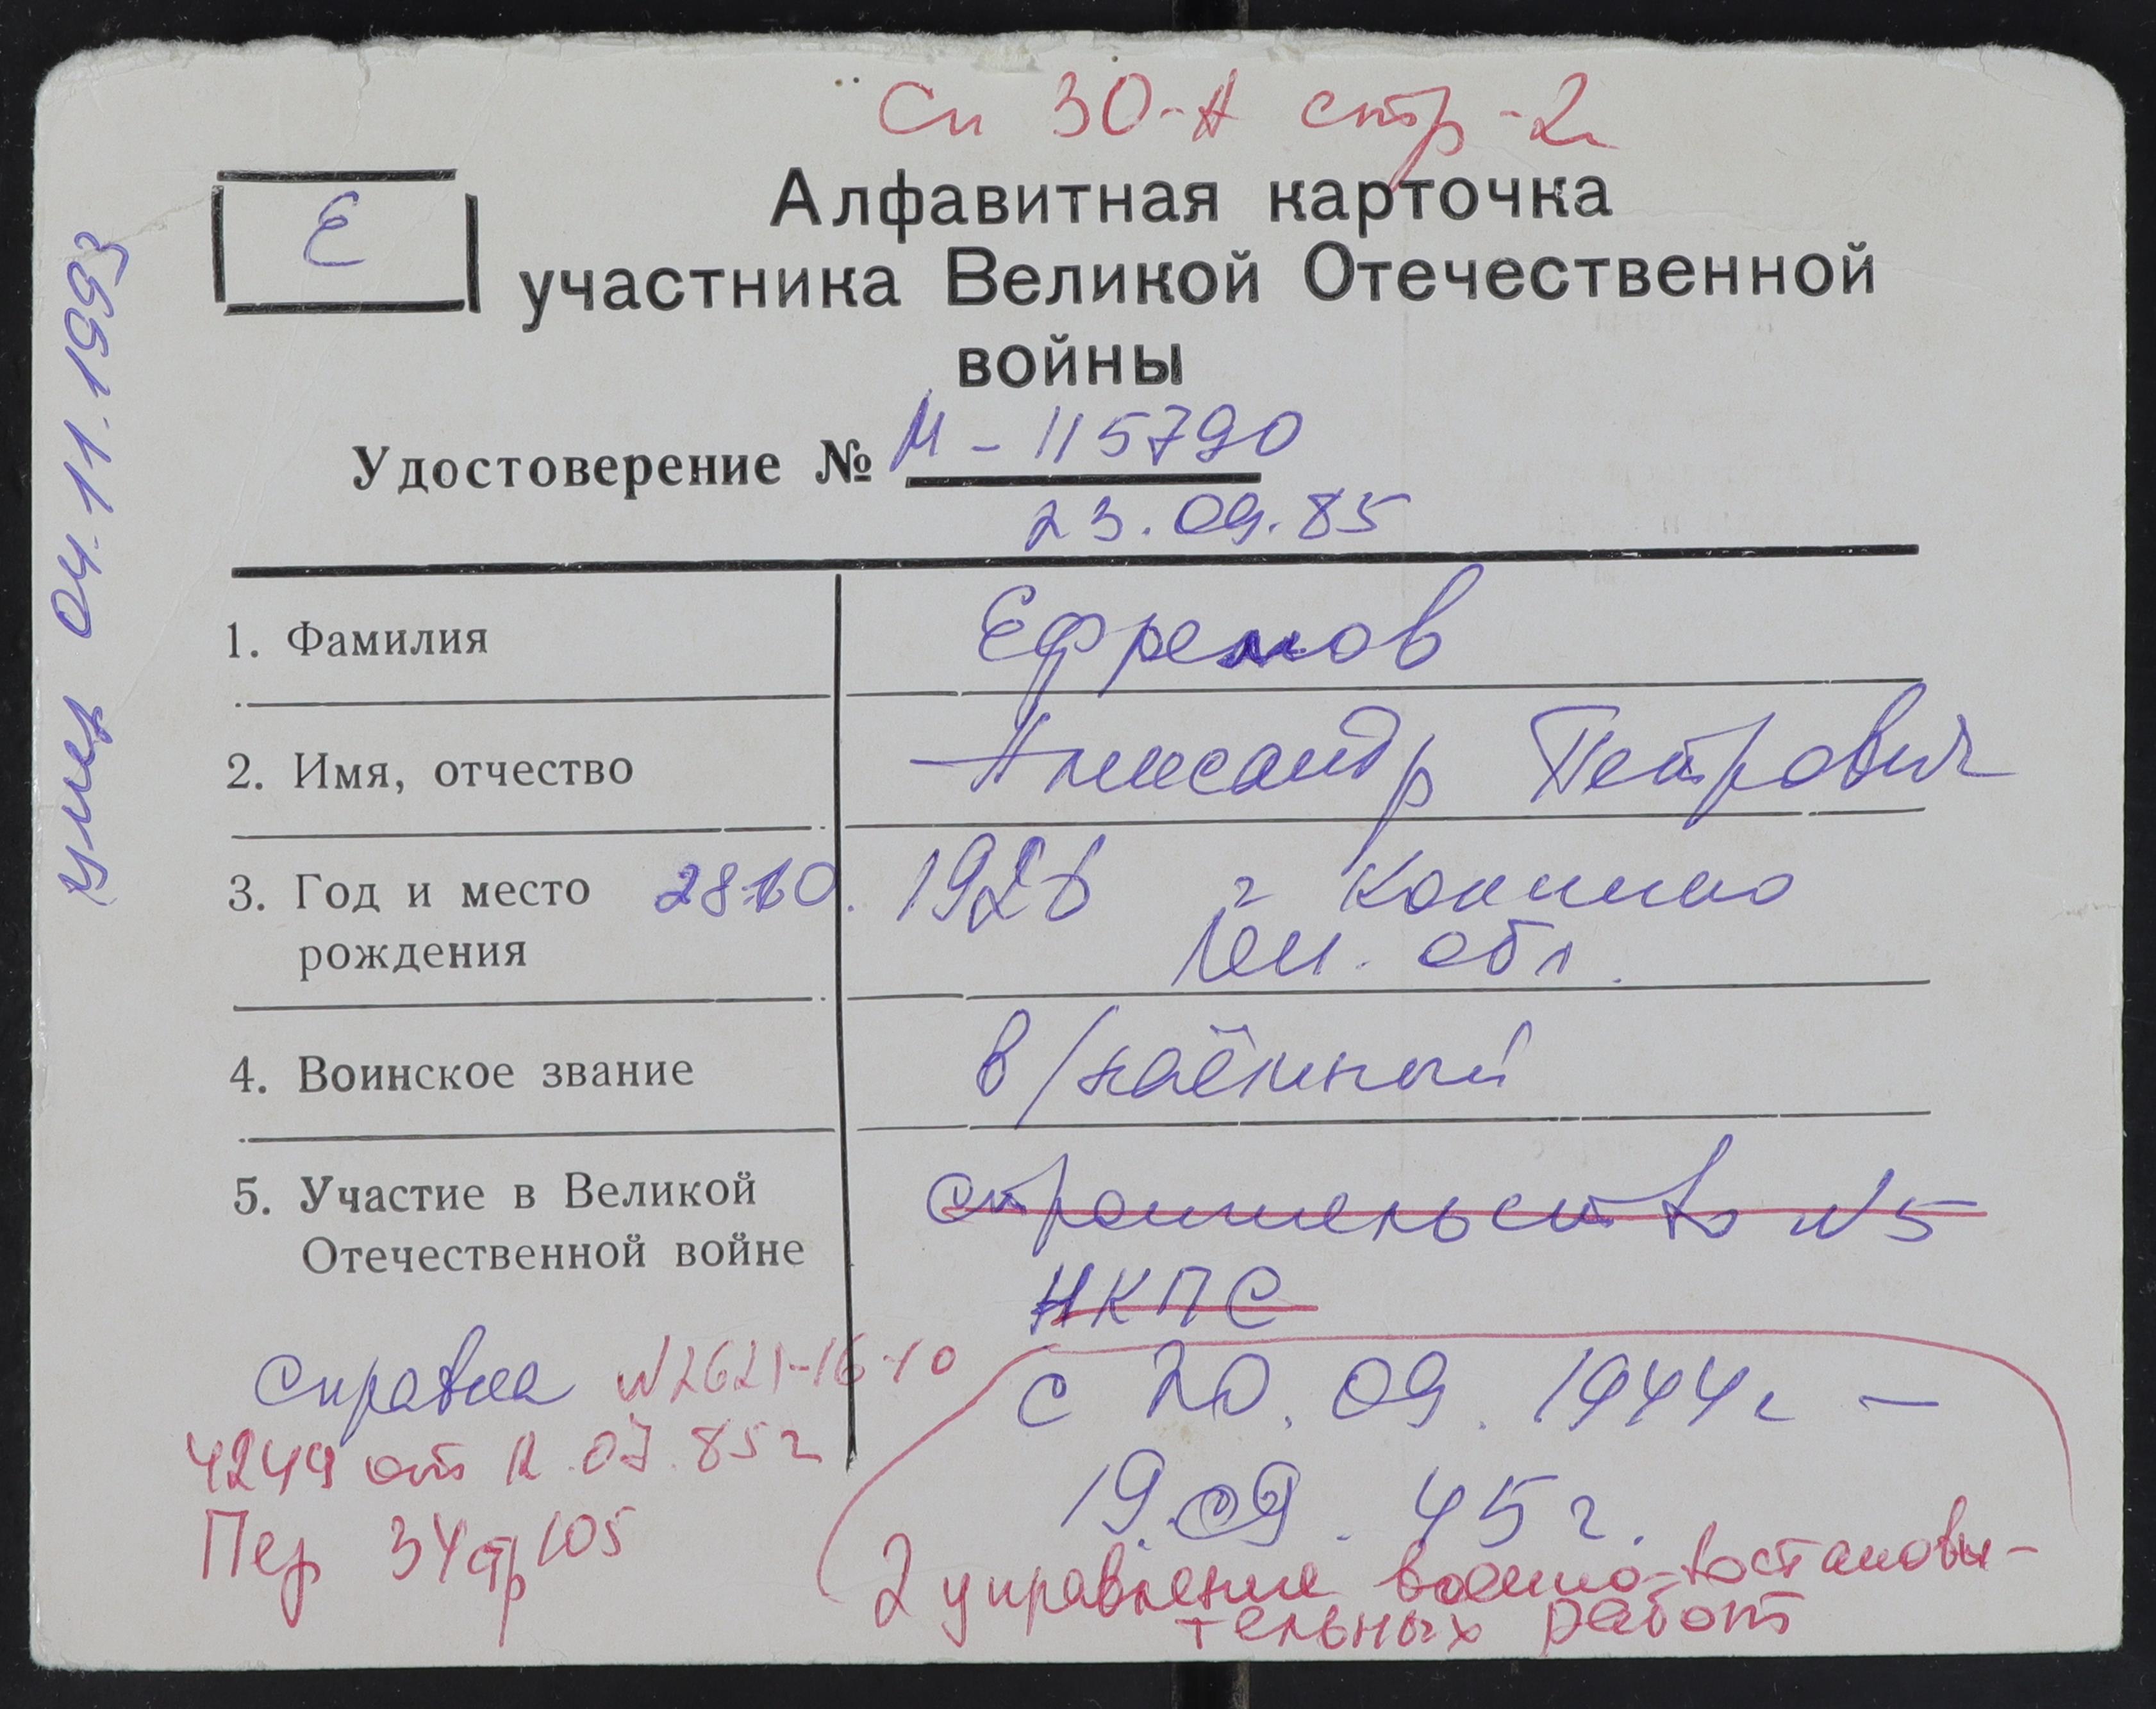 Сп 30-А стр-2
Е
Алфавитная карточка
участника Великой Отечественной
войны
Удостоверение № М-115790
23.09.85
умер 04.11.1993
1. Фамилия Ефремов
2. Имя, отчество Александр Петрович
3. Год и место рождения 28.10. 1926 г Колпино
Лен. обл.
4. Воинское звание в/наёмный
5. Участие в Великой Отечественной войне строительство №5
НКПС
с 20.09.1944г –
19.09.45г.
2 управление военно-востановы-
тельных работ
Справка №2621-16-10
4249 от 12.07.85г
Пер 34 стр 105